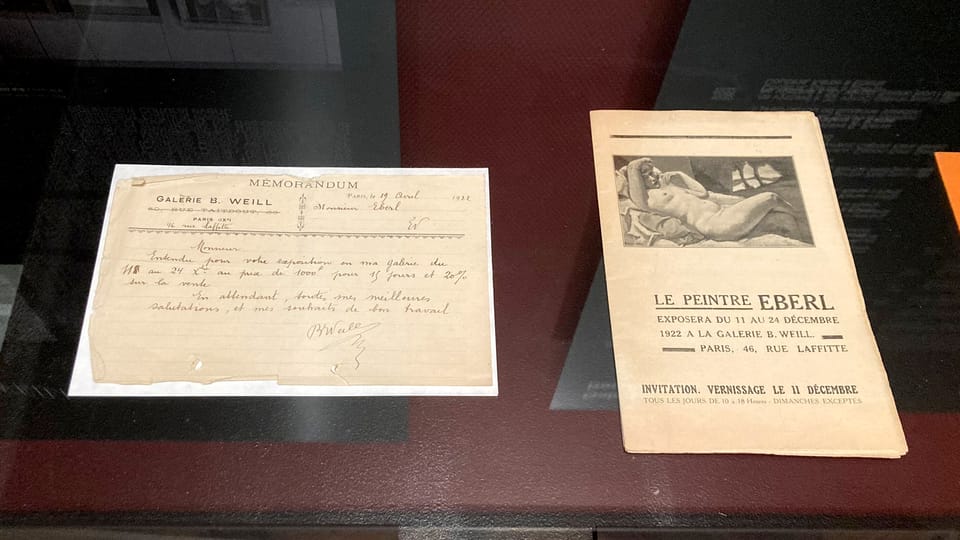 MÉMORANDUM
GALERIE B. WEILL
PARIS, le 19 Avril 1922
Monsieur Eberl
PARIS (IXe)
46 rue Laffitte
Monsieur
Entendu pour votre exposition en ma galerie du
11 au 24 Xbre au prix de 1000f pour 15 jours et 20%
sur la vente
En attendant, toutes mes meilleures
salutations, et mes souhaits de bon travail
BWeill
LE PEINTRE EBERL
EXPOSERA DU 11 AU 24 DÉCEMBRE
1922 A LA GALERIE B. WEILL.
PARIS, 46, RUE LAFFITTE
INVITATION. VERNISSAGE LE 11 DÉCEMBRE
TOUS LES JOURS DE 10 à 18 Heures - DIMANCHES EXCEPTÉS